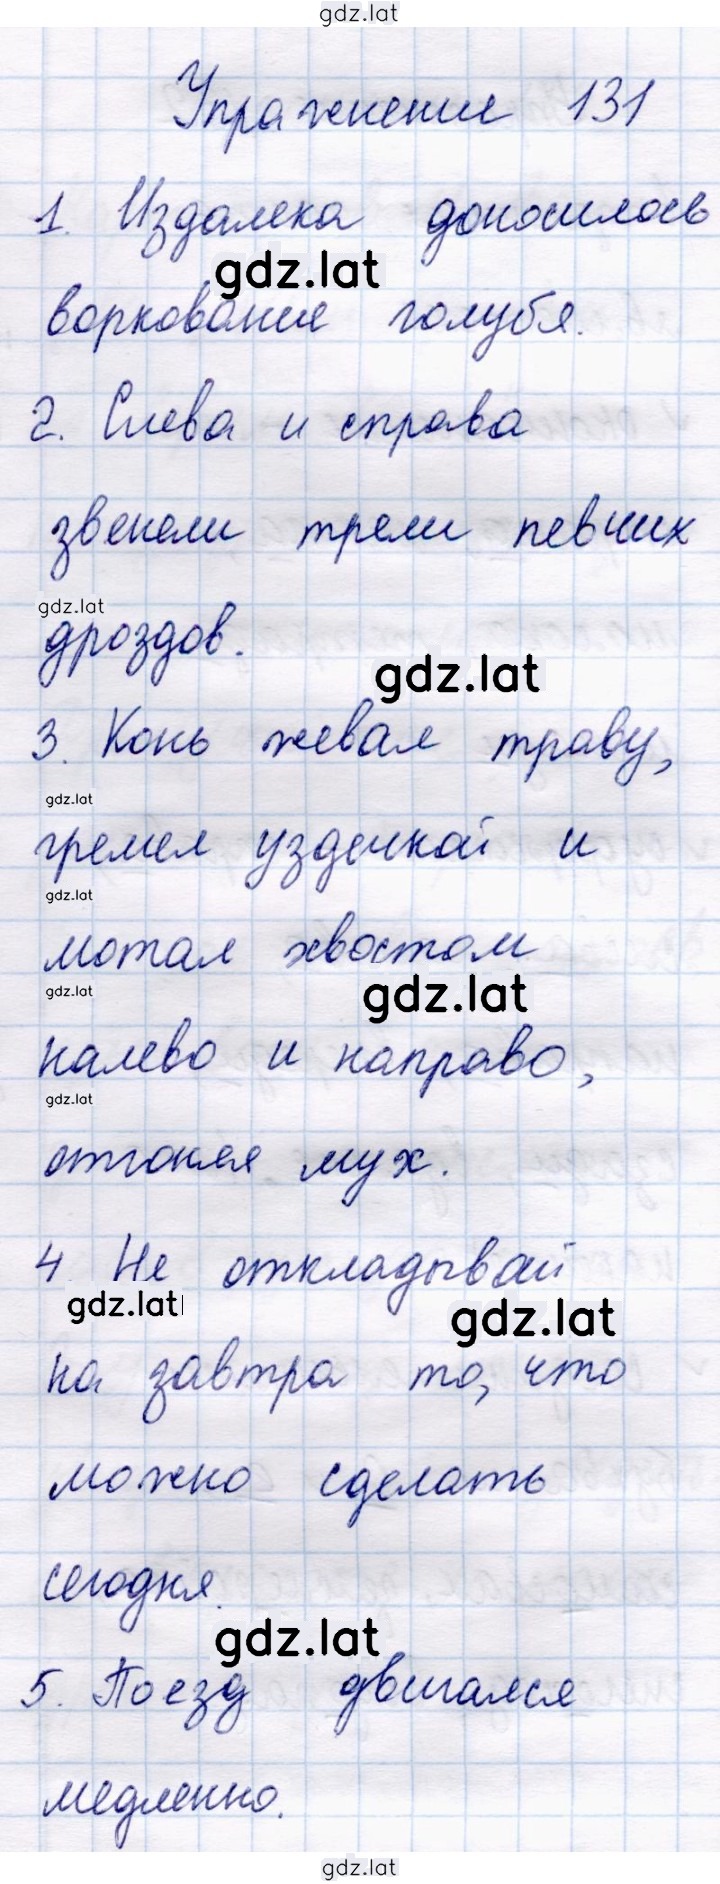 gdz.lat
Упражнение 131
1. Издалека доносилось
gdz.lat
воркование голубя.
2. Слева и справа
звенели трели певчих
gdz.lat
дроздов.
gdz.lat
3. Конь жевал траву,
gdz.lat
гремел уздечкой и
gdz.lat
мотал хвостом
gdz.lat
gdz.lat
налево и направо,
gdz.lat
отгоняя мух.
4. Не откладывай
gdz.lat
gdz.lat
на завтра то, что
можно сделать
сегодня.
gdz.lat
5. Поезд двигался
медленно.
gdz.lat